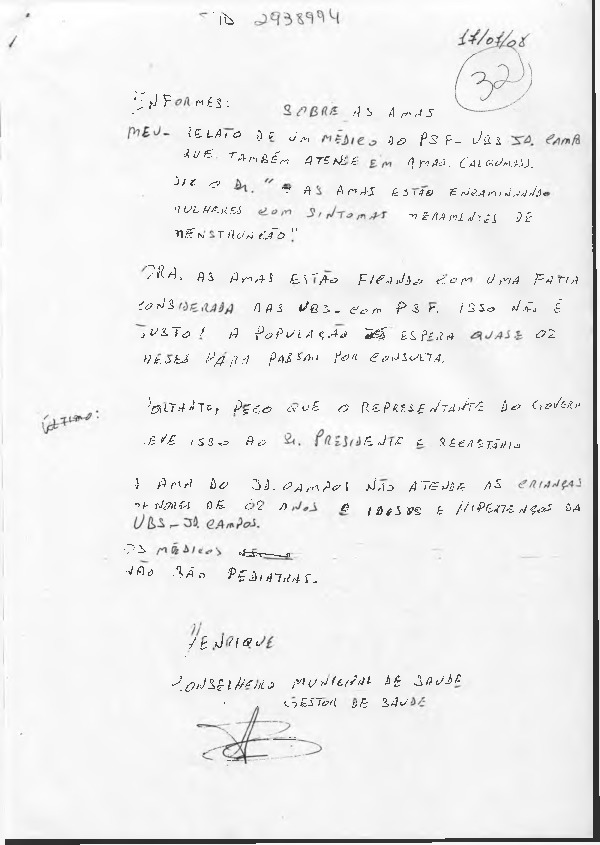 ID 2938994
17/07/08
32
INFORMES: SOBRE AS AMAS
MEU- RELATO DE UM MÉDICO DO PSF- UBS JD. CAMP
QUE TAMBÉM ATENDE EM AMAS. (ALGUMAS).
DIZ O Dr. " AS AMAS ESTÃO ENCAMINHANDO
MULHERES COM SINTOMAS MERAMENTES DE
MENSTRUAÇÃO!"
ORA, AS AMAS ESTÃO FICANDO COM UMA FATIA
CONSIDERADA NAS UBS- COM PSF. ISSO NÃO É
JUSTO! A POPULAÇÃO ESPERA QUASE 02
MESES PARA PASSAR POR CONSULTA.
ÚLTIMO:
PORTANTO, PEÇO QUE O REPRESENTANTE DO GOVERN
LEVE ISSO AO Sr. PRESIDENTE E SECRETÁRIO
A AMA DO JD. CAMPOS NÃO ATENDE AS CRIANÇAS
MENORES DE 02 ANOS E IDOSOS E HIPERTENÇOS DA
UBS- JD CAMPOS.
OS MÉDICOS
NÃO SÃO PEDIATRAS.
HENRIQUE
CONSELHEIRO MUNICIPAL DE SAUDE
GESTOR DE SAUDE